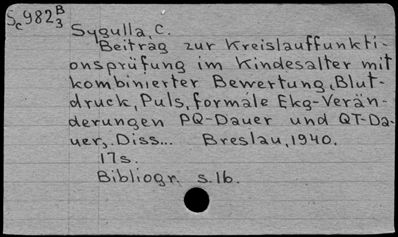 Sc982 B3
Sygulla, C.
Beitrag zur Kreislauffunkti-
onsprüfung im Kindesalter mit
kombinierter Bewertung, Blut-
druck, Puls, formale Ekg-Verän-
derungen PQ-Dauer und QT-Da-
uer,. Diss... Breslau, 1940.
17s.
Bibliogr. s.16.